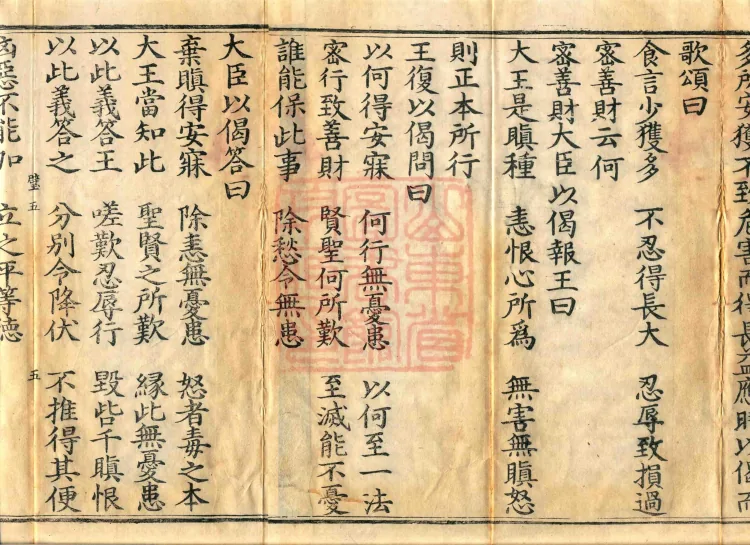 多所安獲不到危害而行長益應時以偈而
歌頌曰
食言少獲多　不忍得長大　忍辱致損過
審善財云何
審善財大臣以偈報王曰
大王是瞋種　恚恨心所爲　無害無瞋怒
則正本所行
王復以偈問曰
以何得安寐　何行無憂患　以何至一法
審行致善財　賢聖何所歎　至滅能不憂
誰能保此事　除愁令無患
大臣以偈答曰
棄瞋得安寐　除恚無憂患　怒者毒之本
大王當知此　聖賢之所歎　緣此無憂患
以此義答王　嗟歎忍辱行　毀呰千瞋恨
以此義答之　分別令降伏　不推得其便
璧五　五
惡不能加　立之平等德